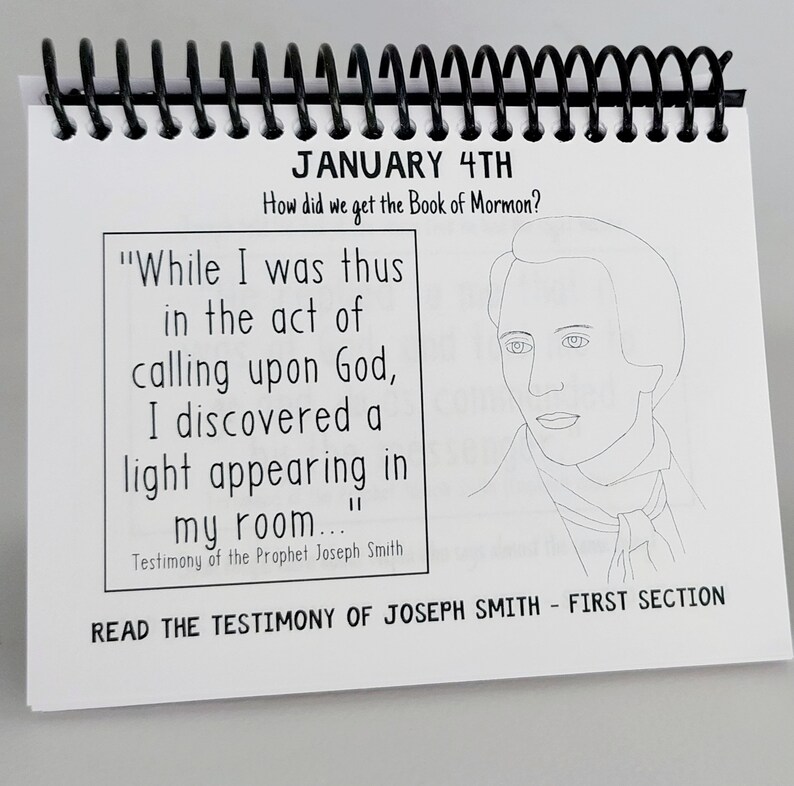 JANUARY 4TH
How did we get the Book of Mormon?
"While I was thus
in the act of
calling upon God,
I discovered a
light appearing in
my room..."
Testimony of the Prophet Joseph Smith
READ THE TESTIMONY OF JOSEPH SMITH - FIRST SECTION